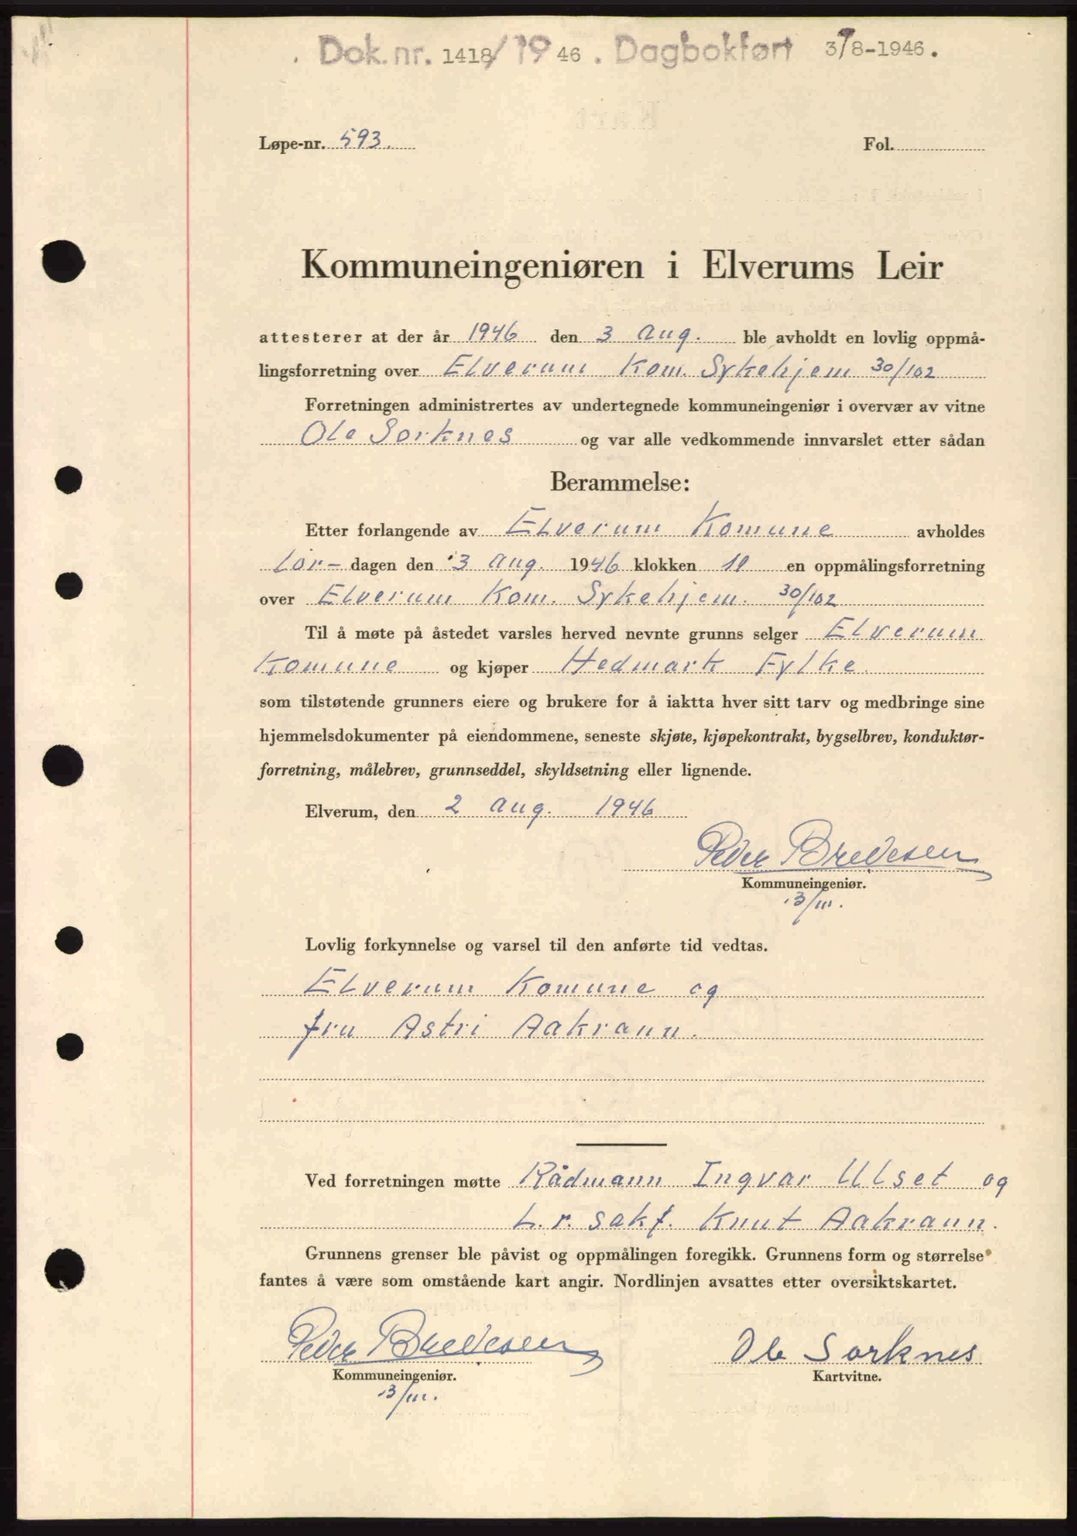 Dok.nr. 1418/1946. Dagbokført 3/8-1946.
Løpe-nr. 593. Fol.
Kommuneingeniøren i Elverums Leir
attesterer at der år 1946 den 3 aug. ble avholdt en lovlig oppmå-
lingsforretning over Elverum Kom. Sykehjem 30/102
Forretningen administrertes av undertegnede kommuneingeniør i overvær av vitne
Ole Sorknes og var alle vedkommende innvarslet etter sådan
Berammelse:
Etter forlangende av Elverum Komune avholdes
Lør- dagen den 3 aug. 1946 klokken 11 en oppmålingsforretning
over Elverum Kom. Sykehjem. 30/102
Til å møte på åstedet varsles herved nevnte grunns selger Elverum
Komune og kjøper Hedmark Fylke.
som tilstøtende grunners eiere og brukere for å iaktta hver sitt tarv og medbringe sine
hjemmelsdokumenter på eiendommene, seneste skjøte, kjøpekontrakt, bygselbrev, konduktør-
forretning, målebrev, grunnseddel, skyldsetning eller lignende.
Elverum, den 2 aug. 1946
Peder Bredesen
Kommuneingeniør.
Lovlig forkynnelse og varsel til den anførte tid vedtas.
Elverum Komune og
fru Astri Aakrann.
Ved forretningen møtte Rådmann Ingvar Ulset og
L.r. sakf. Knut Aakrann.
Grunnens grenser ble påvist og oppmålingen foregikk. Grunnens form og størrelse
fantes å være som omstående kart angir. Nordlinjen avsattes etter oversiktskartet.
Peder Bredesen Ole Sorknes
Kommuneingeniør. Kartvitne.